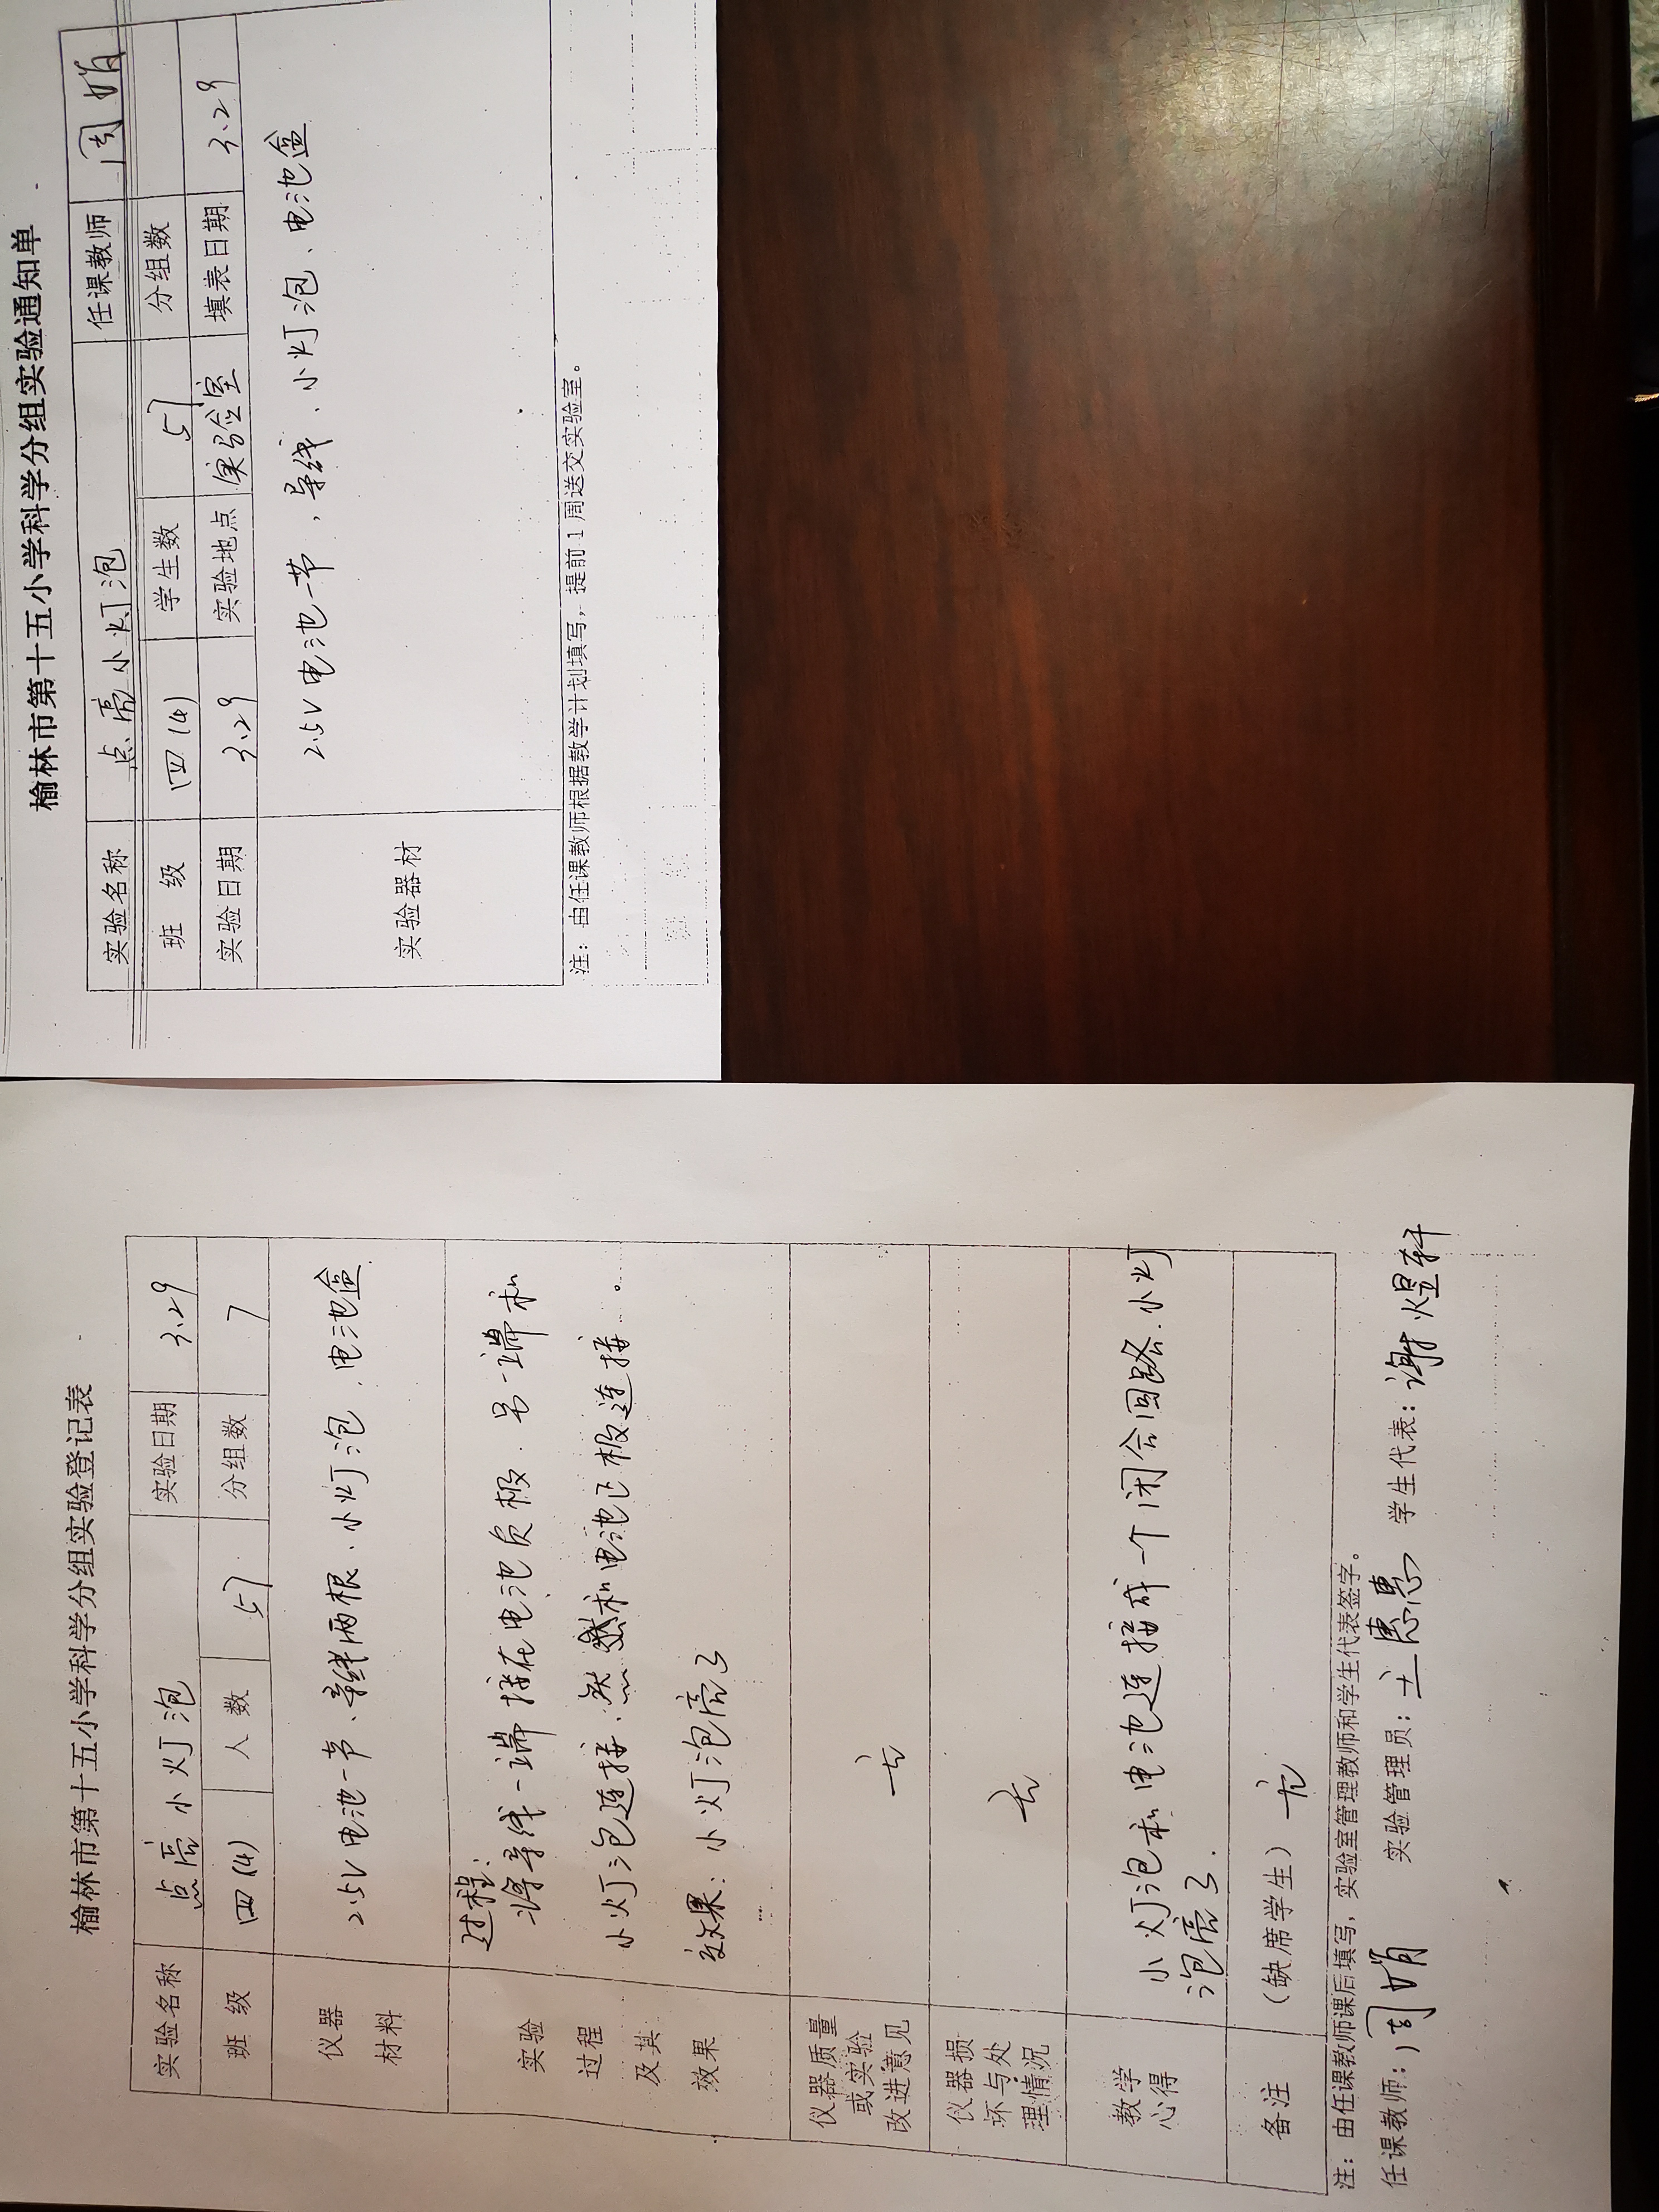 榆林市第十五小学科学分组实验通知单
实验名称 点亮小灯泡 任课教师 周娟
班 级 四(4) 学生数 57 分组数
实验日期 3.29 实验地点 实验室 填表日期 3.29
实验器材 2.5V电池一节,导线、小灯泡、电池盒
注:由任课教师根据教学计划填写,提前1周送交实验室。
榆林市第十五小学科学分组实验登记表
实验名称 点亮小灯泡 实验日期 3.29
班 级 四(4) 人 数 57 分组数 7
仪器 2.5V电池一节、导线两根、小灯泡、电池盒
材料
过程:
实验 将导线一端接在电池负极.另一端和
过程 小灯泡连接.然 和电池正极连接。
及其
效果 效果:小灯泡亮了
仪器质量
或实验 无
改进意见
仪器损
坏与处 无
理情况
教学 小灯泡和电池连接成一个闭合回路.小灯
心得 泡亮了.
备注 (缺席学生) 无
注:由任课教师课后填写,实验室管理教师和学生代表签字。
任课教师:周娟 实验管理员:王惠惠 学生代表:谢煜轩